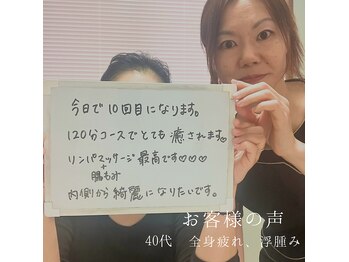 今日で10回目になります。
120分コースでとても癒されます♡
リンパマッサージ最高です♡♡♡
+
腸もみ
内側から綺麗になりたいです。
お客様の声
40代 全身疲れ、浮腫み